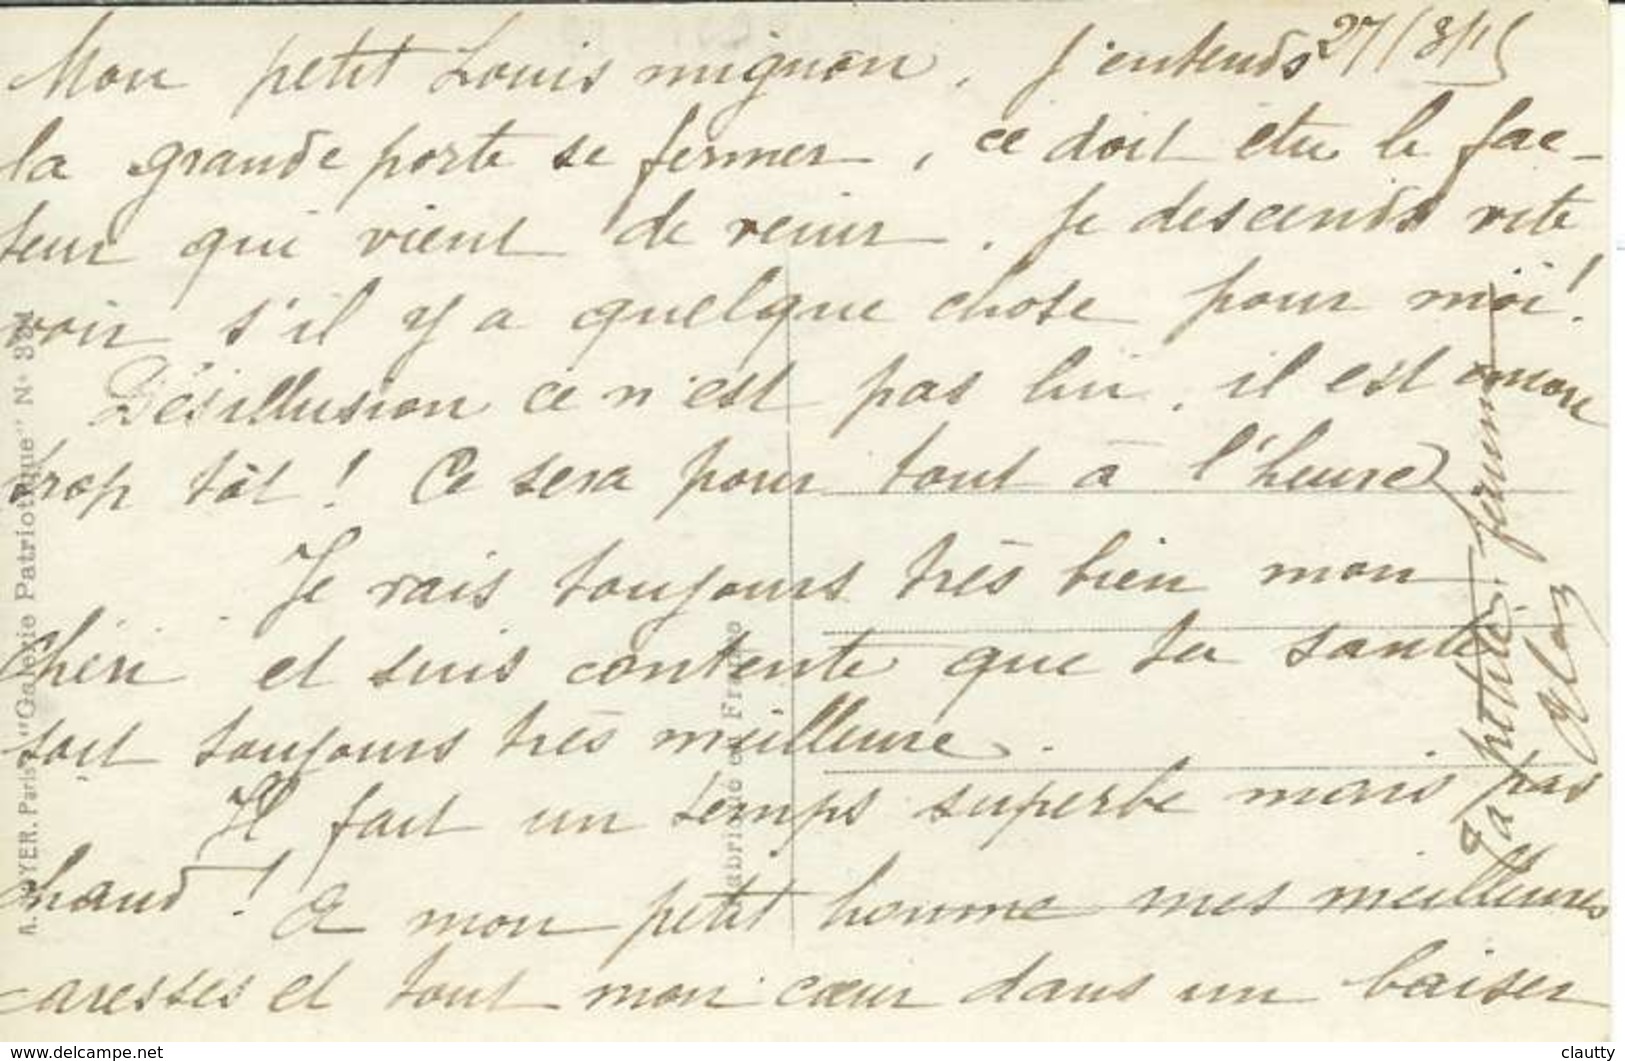 27/8/15
Mon petit Louis mignon, j'entends
la grande porte se fermer, ce doit être le fac-
teur qui vient de venir. Je descends vite
voir s'il y a quelque chose pour moi!
Désillusion ce n'est pas lui, il est encore
trop tôt! Ce sera pour tout à l'heure
Je vais toujours très bien mon
Chéri et suis contente que ta santé
soit toujours très meilleure.
Il fait un temps superbe mais pas
chaud! A mon petit homme mes meilleures
caresses et tout mon cœur dans un baiser
Ta petite femme
A. NOYER. Paris "Galerie Patriotique" N° 321
Fabriqué en France
www.delcampe.net
clautty